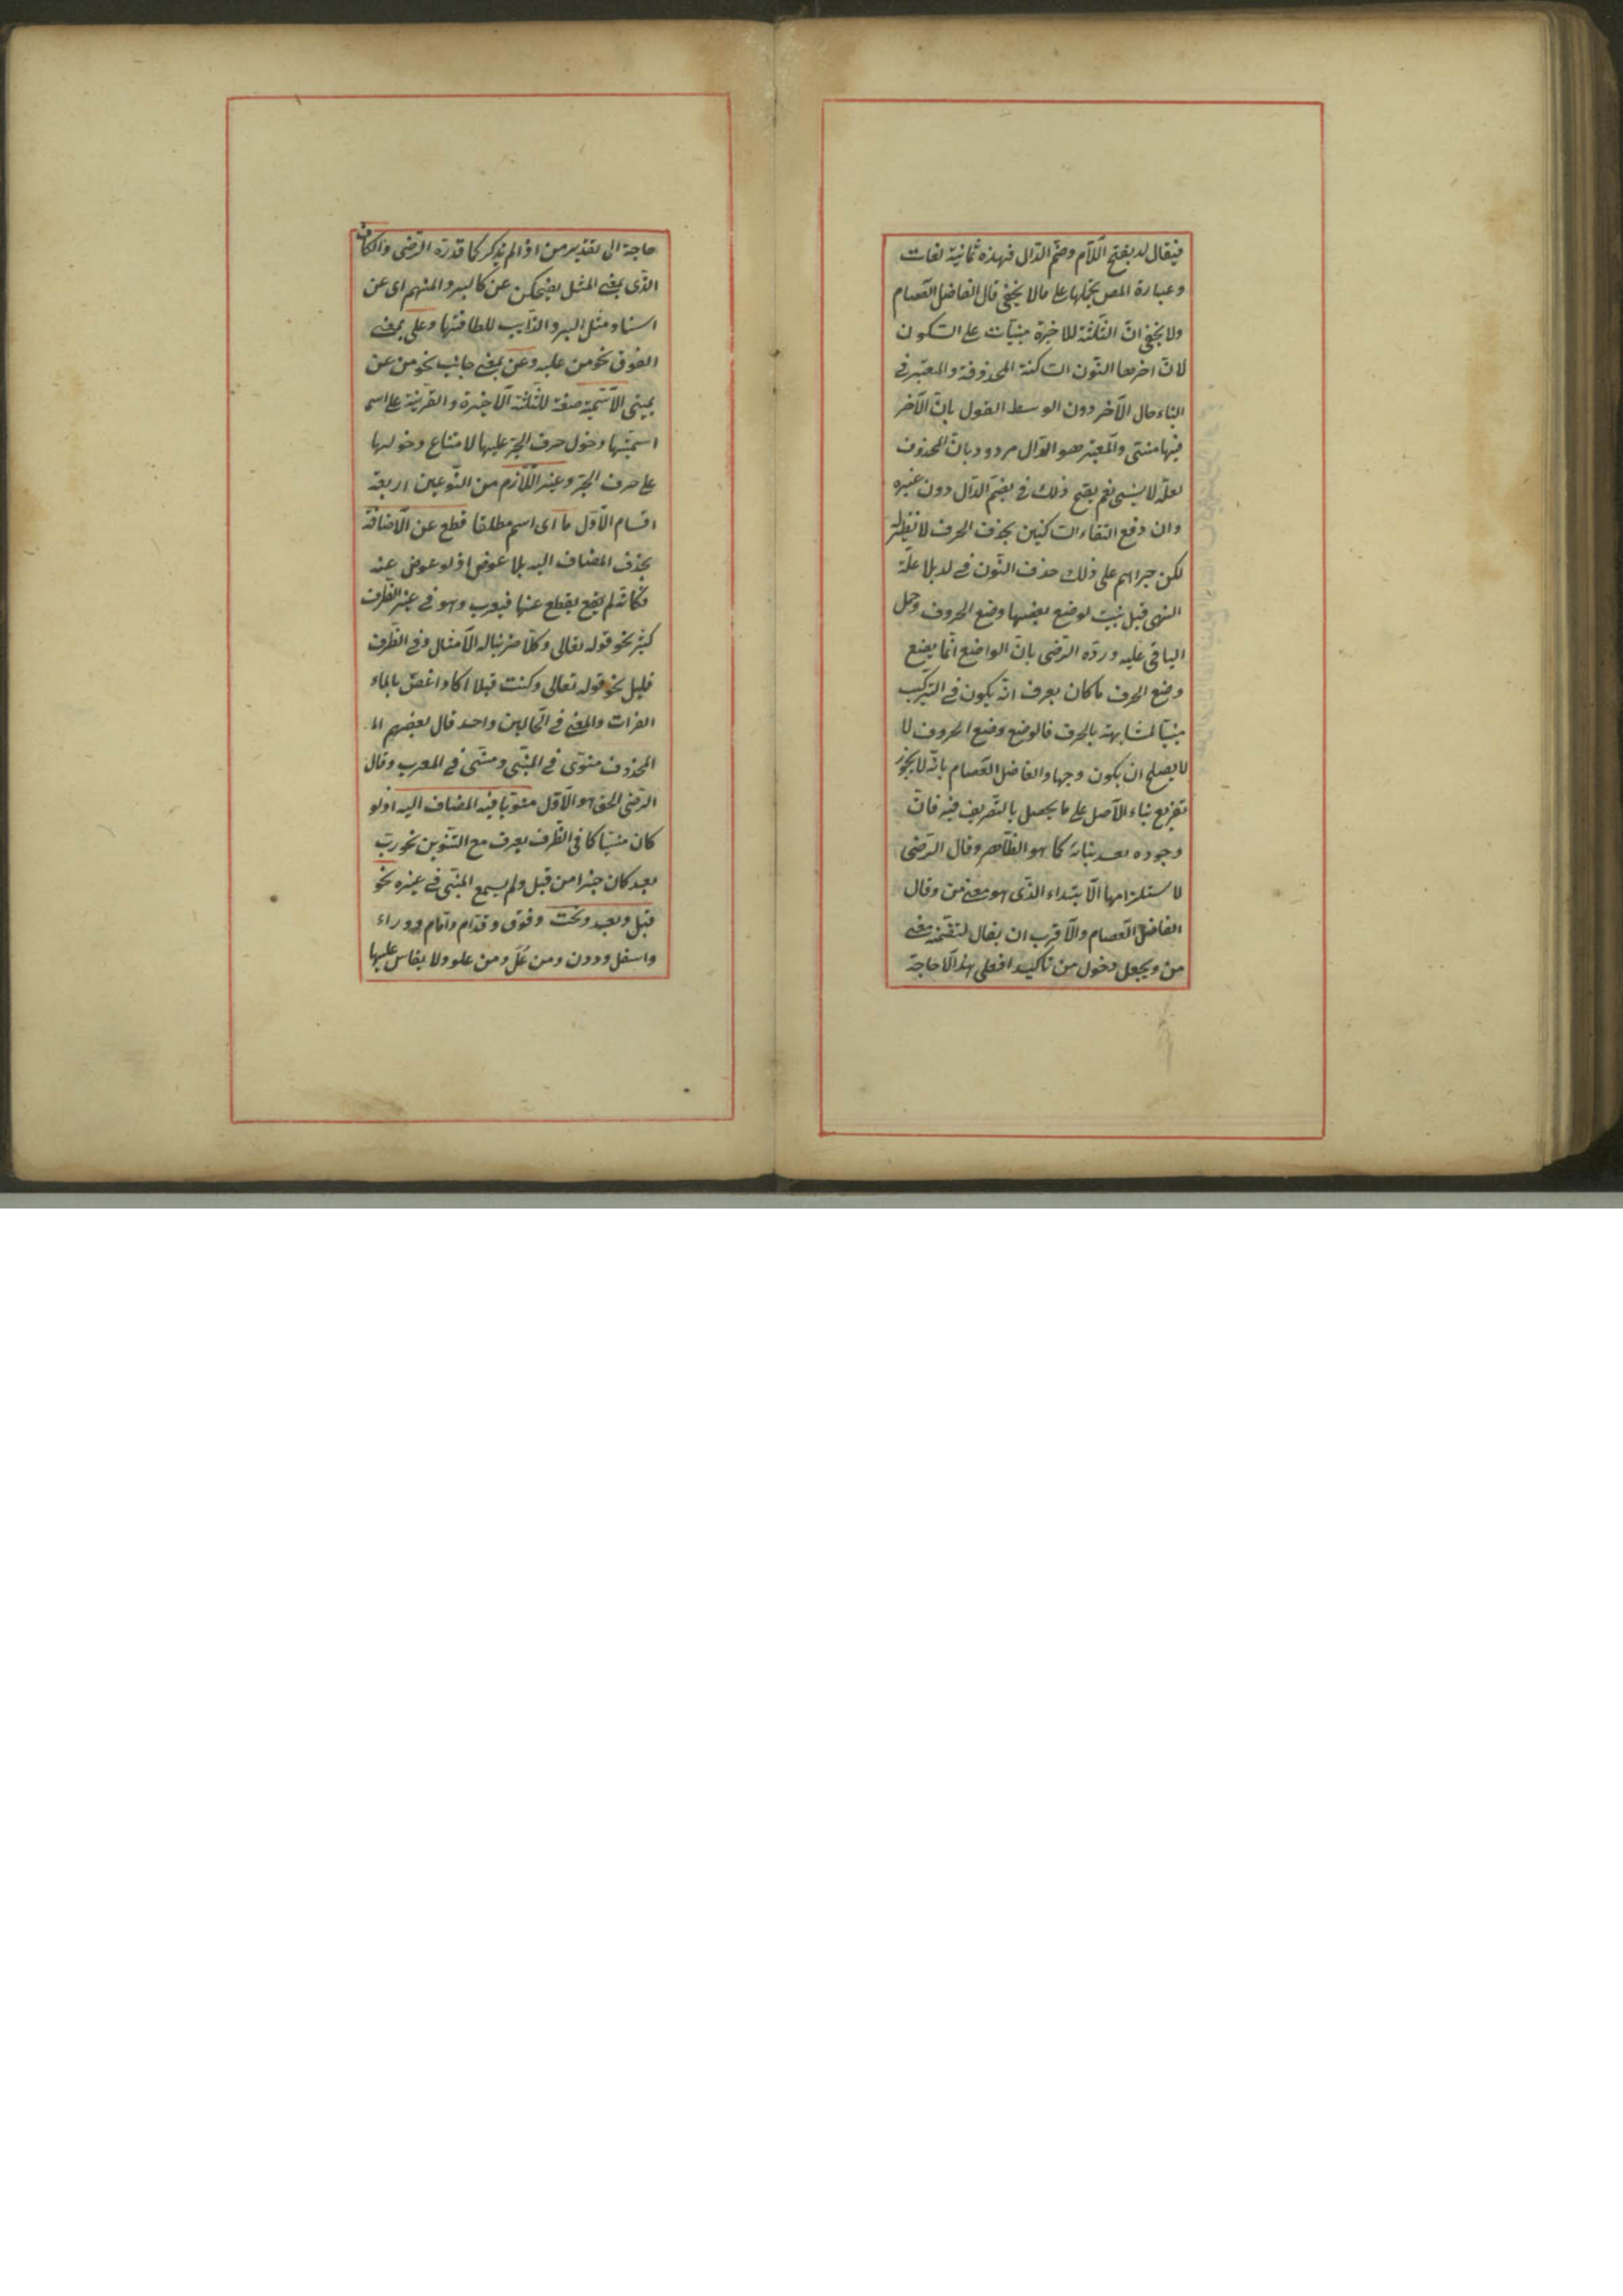 فيقال لد بفتح اللّام وضمّ الدّال فهذه ثمانية لغات
وعبارة المص يحملها على مالا يخفى قال الفاضل العصام
ولا يخفى انّ الثّلثة الاخيرة مبنيّات على السّكون
لانّ اخرها النّون السّاكنة المحذوفة والمعتبر فى
البناء حال الآخر دون الوسط القول بانّ الآخر
فيها منسىّ والمعتبر هو الدّال مردود بانّ المحذوف
لعلّة لا ينسى نعم يقبح ذلك فى بضمّ الدّال دون غيره
وان دفع التقاء السّاكنين بحذف الحرف لا نظير له
لكن جراهم على ذلك حذف النّون فى لد بلا علّة
انتهى قيل بنيت لوضع بعضها وضع الحروف وحمل
الباقى عليه وردّه الرّضى بانّ الواضع انّما يضع
وضع الحرف ما كان يعرف انّه يكون فى التّركيب
مبنيّا لمشابهته بالحرف فالوضع وضع الحروف لا
لا يصلح ان يكون وجها والفاضل العصام بانّه لا يجوز
تفريع بناء الاصل على ما يحصل بالتّصريف فيه فانّ
وجوده بعد بنائه كما هو الظّاهر وقال الرّضى
لاستلزامها الابتداء الذّى هو معنى من وقال
الفاضل العصام والاقرب ان يقال لتضمّنه معنى
من ويجعل دخول من تأكيدا فعلى هذا لا حاجة
حاجة الى تقدير من اذا لم يذكر كما قدّره الرّضى والكاف
الذّى بمعنى المثل يضحكن عن كالبرد المنهم اى عن
اسنان مثل البرد الذّايب للطافتها وعلى بمعنى
الفوق نحو من عليه وعن بمعنى جانب نحو من عن
يمينى الاسميّة صفة للثّلثة الاخيرة والقرينة على اسم
اسميّتها دخول حرف الجرّ عليها لامتناع دخولها
على حرف الجرّ وغير اللّازم من النّوعين اربعة
اقسام الاوّل ما اى اسم مطلقا قطع عن الاضافة
بحذف المضاف اليه بلا عوض اذ لو عوض عنه
فكانّه لم يقع بقطع عنها فيعرب وهو فى غير الظّرف
كثير نحو قوله تعالى وكلّا ضربنا له الامثال وفى الظّرف
قليل نحو قوله تعالى وكنت قبلا اكاد اغصّ بالماء
الفرات والمعنى فى الحالين واحد قال بعضهم ال
المحذوف منوىّ فى المبنّى ومنسّى فى المعرب وقال
الرّضى الحق هو الاوّل منويّا فيه المضاف اليه اذ لو
كان منسيّا كا فى الظّرف يعرف مع التّنوين نحو ربّ
بعد كان خيرا من قبل ولم يسمع المبنّى فى غيره نحو
قبل وبعد وتحت وفوق وقدّام وامام ووراء
واسفل ودون ومن عَلُ ومن علو ولا يقاس عليها